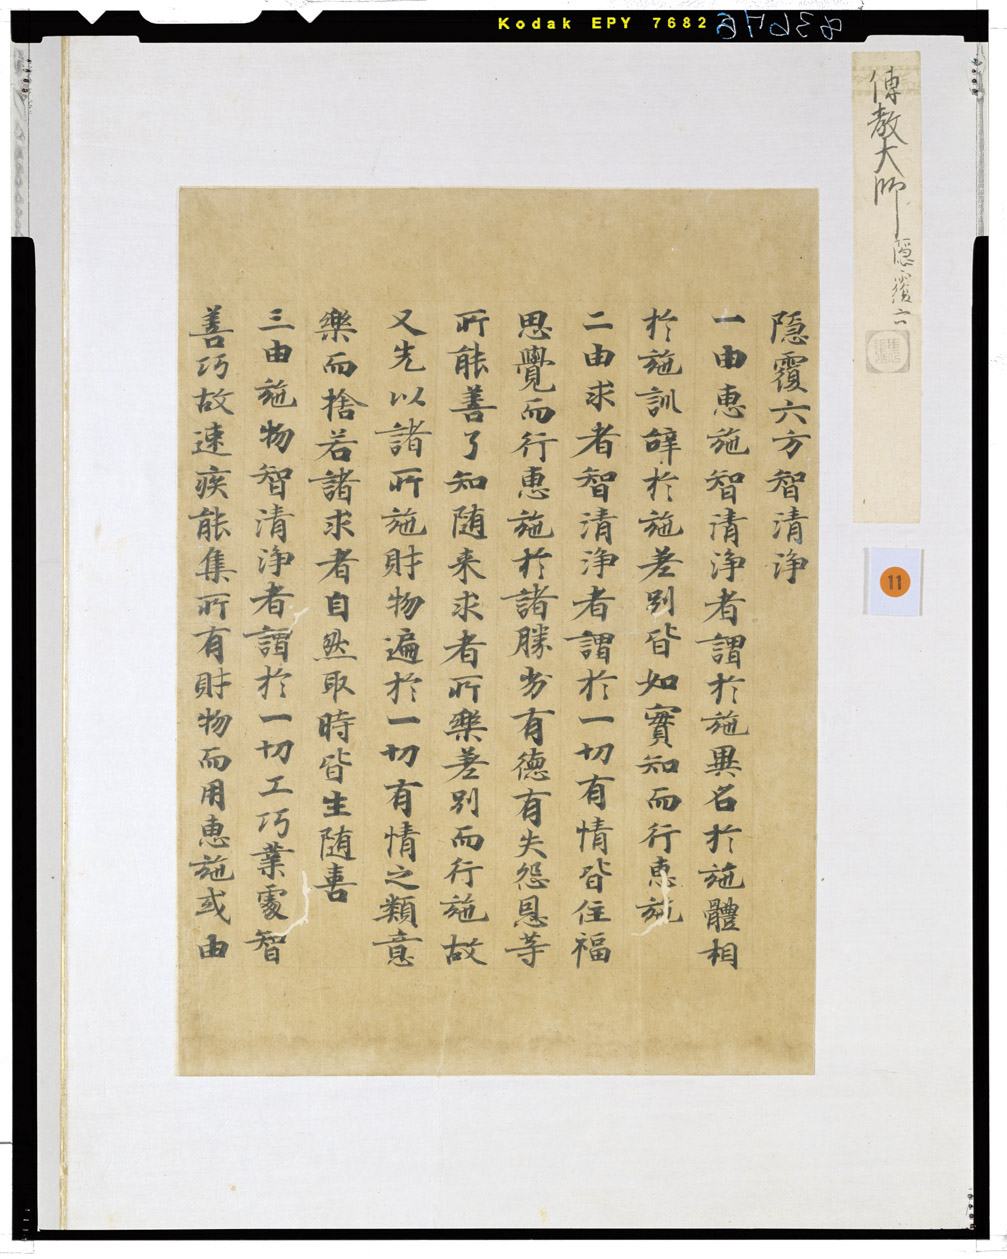 Kodak EPY 7682
傳教大師 隱覆六
11
隱覆六方智清淨
一由惠施智清淨者謂於施異名於施體相
於施訓辝於施差別皆如實知而行惠施
二由求者智清淨者謂於一切有情皆住福
思覺而行惠施於諸勝劣有德有失怨恩等
所能善了知随来求者所樂差別而行施故
又先以諸所施財物遍於一切有情之類意
樂而捨若諸求者自然取時皆生随喜
三由施物智清淨者謂於一切工巧業處智
善巧故速疾能集所有財物而用惠施或由